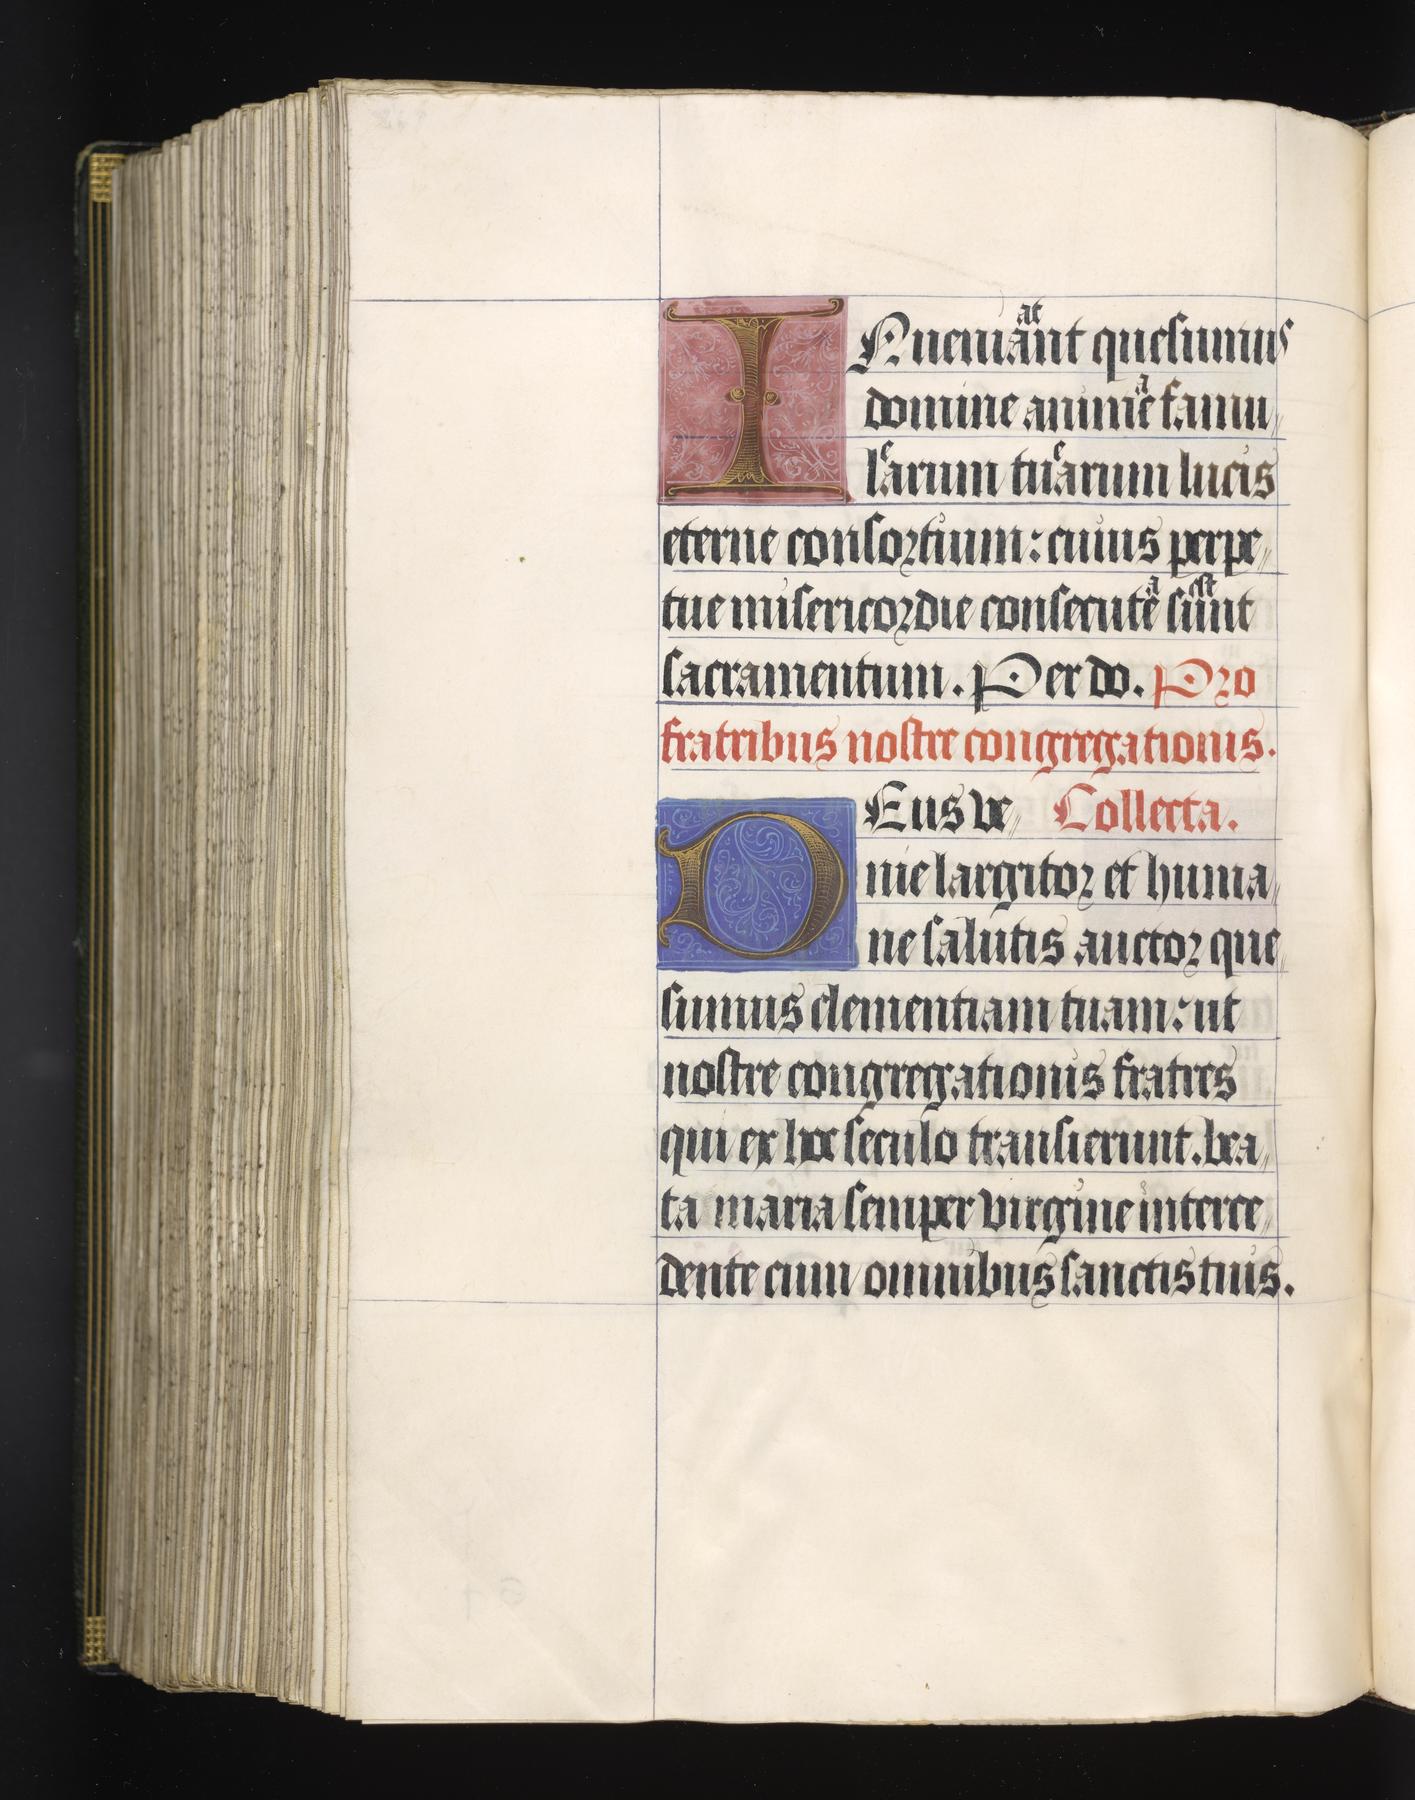 INueniant at quesumus
domine anime a famu
larum e tuarum e lucis
eterne consortium: cuius perpe
tue misericordie consecute a sunt est
sacramentum. Per do. Pro
fratribus nostre congregationis.
DEus ve Collecta.
nie largitor et huma
ne salutis auctor que
sumus clementiam tuam: ut
nostre congregationis fratres
qui ex hoc seculo transierunt. bea
ta maria semper virgine interce
dente cum omnibus sanctis tuis.